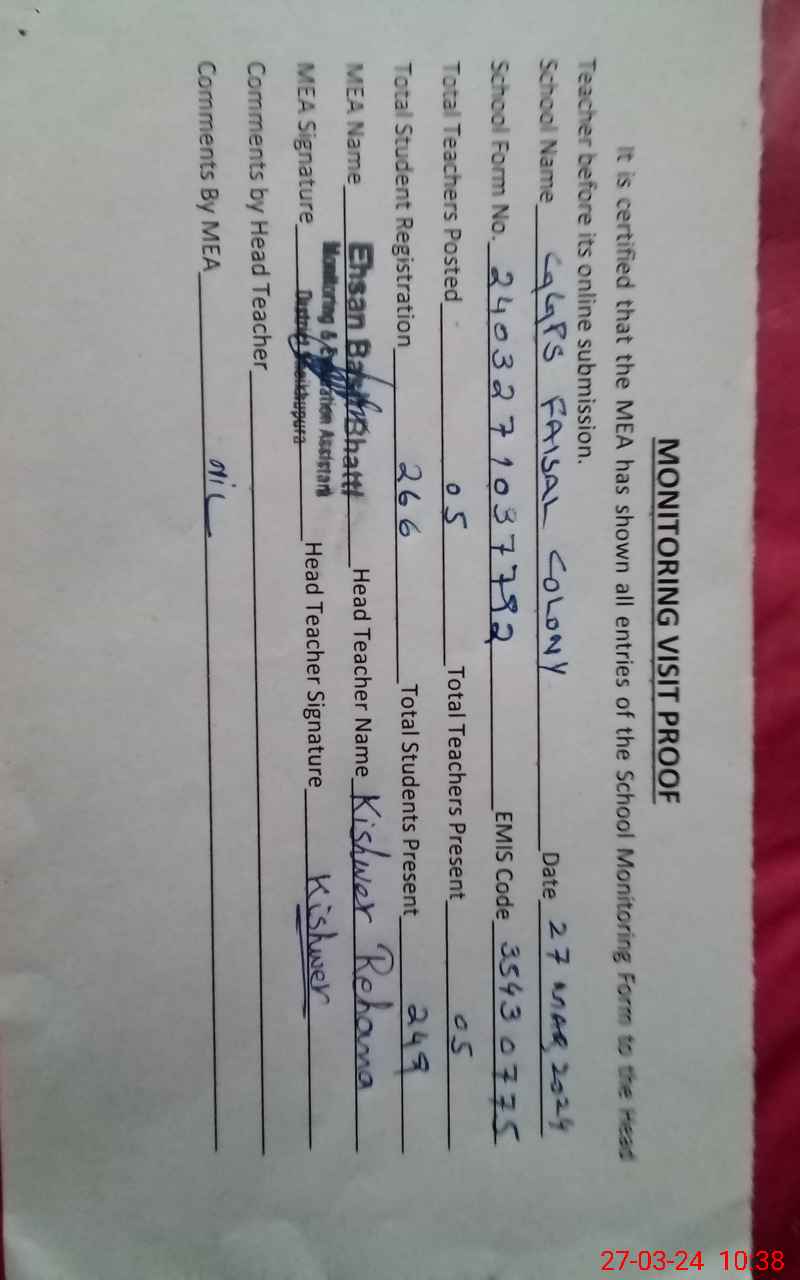 MONITORING VISIT PROOF
It is certified that the MEA has shown all entries of the School Monitoring Form to the Head
Teacher before its online submission.
School Name GGPS FAISAL COLONY Date 27 MAR, 2024
School Form No. 2403271037792 EMIS Code 35430775
Total Teachers Posted 05 Total Teachers Present 05
Total Student Registration 266 Total Students Present 249
MEA Name Ehsan Bhatti Head Teacher Name Kishwer Rehana
Monitoring & Assistant
MEA Signature District Sheikhupura Head Teacher Signature Kishwer
Comments by Head Teacher
Comments By MEA NiL
27-03-24 10:38